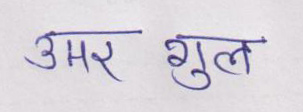 उमर गुल